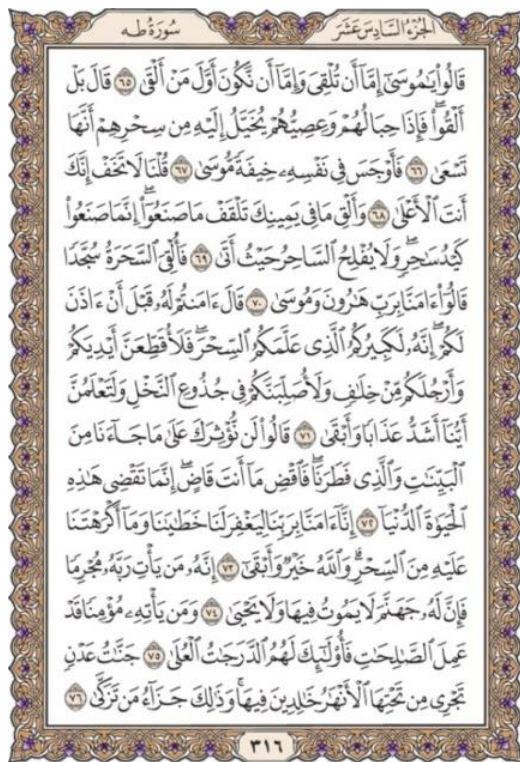 سُورَةُ طه
الجُزْءُ السَّادِسَ عَشَرَ
قَالُوا۟ يَـٰمُوسَىٰٓ إِمَّآ أَن تُلْقِىَ وَإِمَّآ أَن نَّكُونَ أَوَّلَ مَنْ أَلْقَىٰ ٦٥ قَالَ بَلْ
أَلْقُوا۟ۖ فَإِذَا حِبَالُهُمْ وَعِصِيُّهُمْ يُخَيَّلُ إِلَيْهِ مِن سِحْرِهِمْ أَنَّهَا
تَسْعَىٰ ٦٦ فَأَوْجَسَ فِى نَفْسِهِۦ خِيفَةً مُّوسَىٰ ٦٧ قُلْنَا لَا تَخَفْ إِنَّكَ
أَنتَ ٱلْأَعْلَىٰ ٦٨ وَأَلْقِ مَا فِى يَمِينِكَ تَلْقَفْ مَا صَنَعُوٓا۟ۖ إِنَّمَا صَنَعُوا۟
كَيْدُ سَـٰحِرٍۖ وَلَا يُفْلِحُ ٱلسَّاحِرُ حَيْثُ أَتَىٰ ٦٩ فَأُلْقِىَ ٱلسَّحَرَةُ سُجَّدًا
قَالُوٓا۟ ءَامَنَّا بِرَبِّ هَـٰرُونَ وَمُوسَىٰ ٧٠ قَالَ ءَامَنتُمْ لَهُۥ قَبْلَ أَنْ ءَاذَنَ
لَكُمْۖ إِنَّهُۥ لَكَبِيرُكُمُ ٱلَّذِى عَلَّمَكُمُ ٱلسِّحْرَۖ فَلَأُقَطِّعَنَّ أَيْدِيَكُمْ
وَأَرْجُلَكُم مِّنْ خِلَـٰفٍ وَلَأُصَلِّبَنَّكُمْ فِى جُذُوعِ ٱلنَّخْلِ وَلَتَعْلَمُنَّ
أَيُّنَآ أَشَدُّ عَذَابًا وَأَبْقَىٰ ٧١ قَالُوا۟ لَن نُّؤْثِرَكَ عَلَىٰ مَا جَآءَنَا مِنَ
ٱلْبَيِّنَـٰتِ وَٱلَّذِى فَطَرَنَاۖ فَٱقْضِ مَآ أَنتَ قَاضٍۖ إِنَّمَا تَقْضِى هَـٰذِهِ
ٱلْحَيَوٰةَ ٱلدُّنْيَآ ٧٢ إِنَّآ ءَامَنَّا بِرَبِّنَا لِيَغْفِرَ لَنَا خَطَـٰيَـٰنَا وَمَآ أَكْرَهْتَنَا
عَلَيْهِ مِنَ ٱلسِّحْرِۗ وَٱللَّهُ خَيْرٌ وَأَبْقَىٰٓ ٧٣ إِنَّهُۥ مَن يَأْتِ رَبَّهُۥ مُجْرِمًا
فَإِنَّ لَهُۥ جَهَنَّمَ لَا يَمُوتُ فِيهَا وَلَا يَحْيَىٰ ٧٤ وَمَن يَأْتِهِۦ مُؤْمِنًا قَدْ
عَمِلَ ٱلصَّـٰلِحَـٰتِ فَأُو۟لَـٰٓئِكَ لَهُمُ ٱلدَّرَجَـٰتُ ٱلْعُلَىٰ ٧٥ جَنَّـٰتُ عَدْنٍ
تَجْرِى مِن تَحْتِهَا ٱلْأَنْهَـٰرُ خَـٰلِدِينَ فِيهَاۚ وَذَٰلِكَ جَزَآءُ مَن تَزَكَّىٰ ٧٦
٣١٦